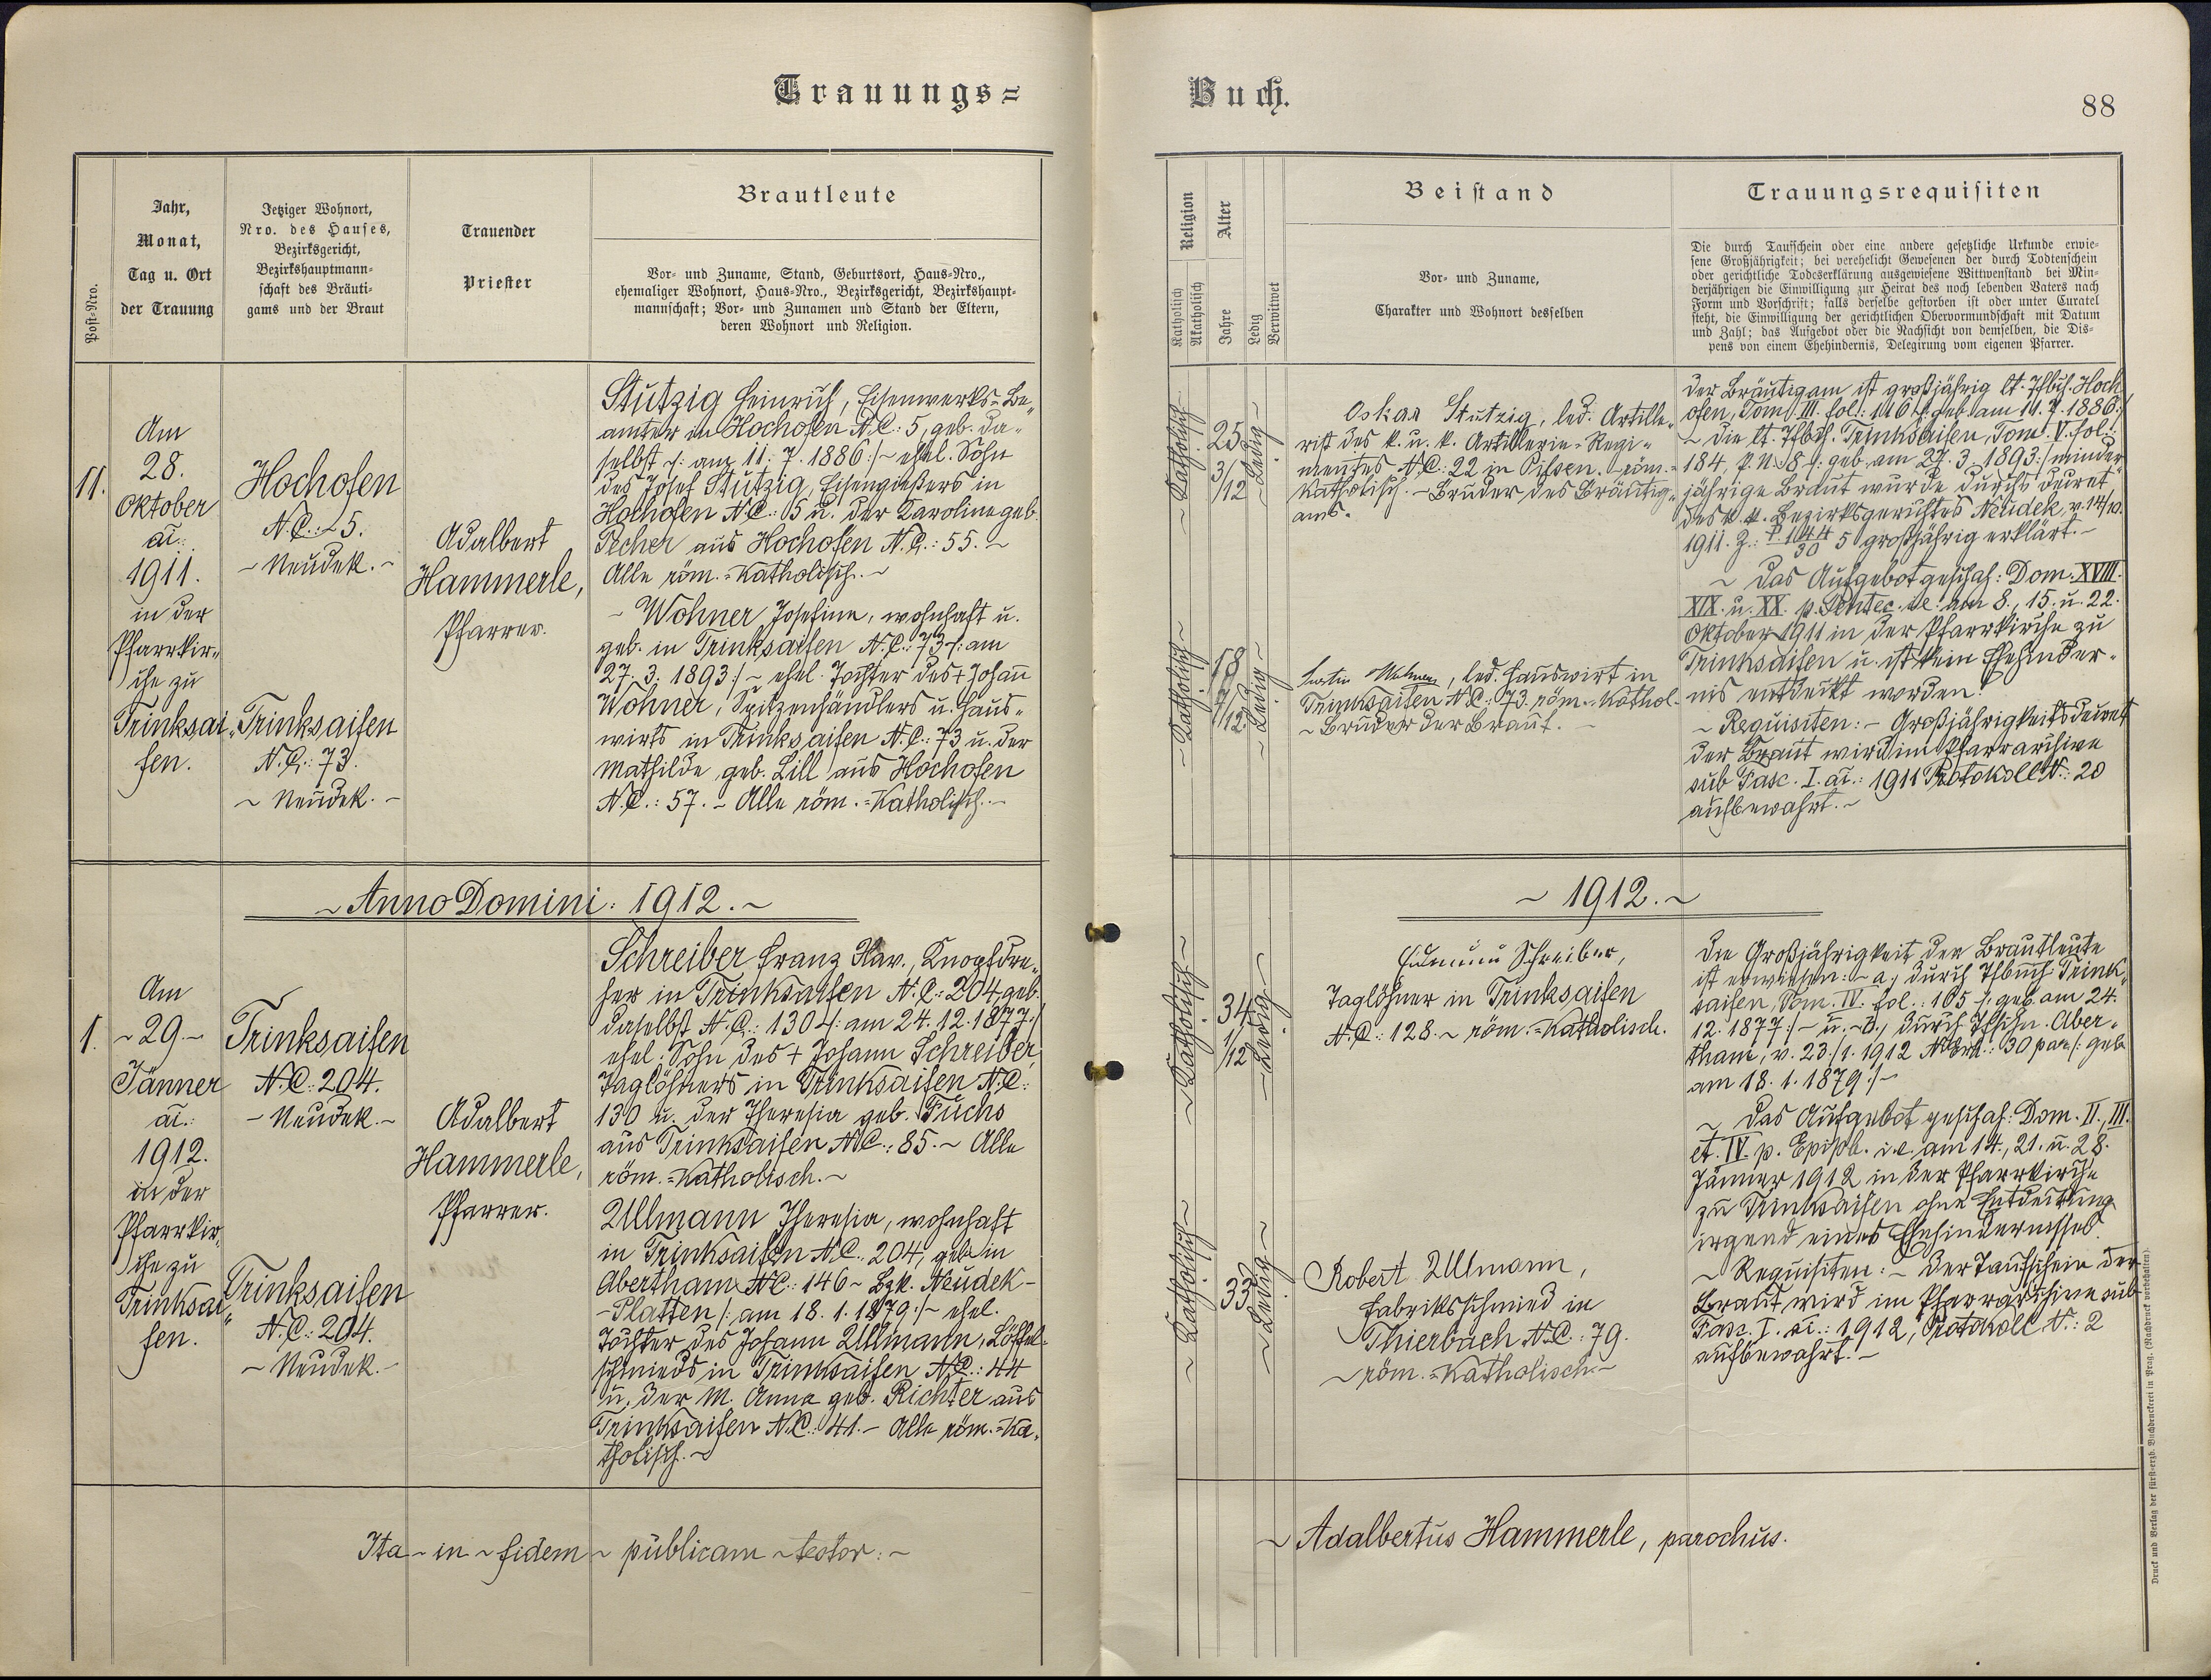 Trauungs=
Buch.
88
Post-Nro.
Jahr,
Monat,
Tag u. Ort
der Trauung
Jetziger Wohnort,
Nro. des Hauses,
Bezirksgericht,
Bezirkshauptmann-
schaft des Bräuti-
gams und der Braut
Trauender
Priester
Brautleute
Vor- und Zuname, Stand, Geburtsort, Haus-Nro.,
ehemaliger Wohnort, Haus-Nro., Bezirksgericht, Bezirkshaupt-
mannschaft; Vor- und Zunamen und Stand der Eltern,
deren Wohnort und Religion.
Religion
Katholisch
Akatholisch
Alter
Jahre
Ledig
Verwitwet
Beistand
Vor- und Zuname,
Charakter und Wohnort desselben
Trauungsrequisiten
Die durch Taufschein oder eine andere gesetzliche Urkunde erwie-
sene Großjährigkeit; bei verehelicht Gewesenen der durch Todtenschein
oder gerichtliche Todeserklärung ausgewiesene Wittwenstand bei Min-
derjährigen die Einwilligung zur Heirat des noch lebenden Vaters nach
Form und Vorschrift; falls derselbe gestorben ist oder unter Curatel
steht, die Einwilligung der gerichtlichen Obervormundschaft mit Datum
und Zahl; das Aufgebot oder die Nachsicht von demselben, die Dis-
pens von einem Ehehindernis, Delegirung vom eigenen Pfarrer.
11.
Am
28.
Oktober
aī.:
1911.
in der
Pfarrkir„
che zu
Trinksai„
fen.
Hochofen
N.C.: 5.
~ Neudek. ~
Trinksaifen
N.C.: 73.
~ Neudek. ~
Adalbert
Hammerle,
Pfarrer.
Stützig Heinrich, Eisenwerks=Be„
amter in Hochofen N.C.: 5, geb. da„
selbst /: am 11. 7. 1886 :/ ~ ehel. Sohn
des Josef Stützig, Eisengießers in
Hochofen N.C.: 5 u. der Karoline geb.
Pecher aus Hochofen N.C.: 55. ~
Alle röm.=katholisch. ~
~ Wohner Josefine, wohnhaft u.
geb. in Trinksaifen N.C.: 73 /: am
27. 3. 1893 :/ ~ ehel. Tochter des + Johann
Wohner, Spitzenhändlers u. Haus„
wirts in Trinksaifen N.C.: 73 u. der
Mathilde geb. Lill aus Hochofen
N.C.: 57. ~ Alle röm.=katholisch. ~
~ Katholisch ~
25
3/12
~ Ledig ~
Oskar Stutzig, led. Artille„
rist des k. u. k. Artillerie=Regi„
mentes N.C.: 22 in Pilsen. ~ röm.=
katholisch. ~ Bruder des Bräutig„
ams.
~ Katholisch ~
18
7/12
~ Ledig ~
Wohner, led. Hauswirt in
Trinksaifen N.C.: 73. röm.=kathol.
~ Bruder der Braut. ~
Der Bräutigam ist großjährig lt. Pfbch. Hoch„
ofen, Tom. III. fol.: 116 /: geb. am 11. 7. 1886 :/
~ die lt. Pfbch. Trinksaifen, Tom. V. fol.:
184, P.N. 8 /: geb. am 27. 3. 1893 :/ minder„
jährige Braut wurde durch Decret
des k. k. Bezirksgerichtes Neudek, v. 14/10.
1911. Z.: P. 144/30 5 großjährig erklärt. ~
~ Das Aufgebot geschah: Dom. XVIII.
XIX. u. XX. p. Pentec. i.e. am 8., 15. u. 22.
Oktober 1911 in der Pfarrkirche zu
Trinksaifen u. ist kein Ehehinder„
nis entdeckt worden.
~ Requisiten: ~ Großjährigkeitsdecret
der Braut wird im Pfarrarchive
sub Fasc. I. aī.: 1911 Protokoll N.: 20
aufbewahrt. ~
~ Anno Domini: 1912. ~
~ 1912. ~
1.
Am
~ 29. ~
Jänner
aī.:
1912.
in der
Pfarrkir„
che zu
Trinksai„
fen.
Trinksaifen
N.C.: 204.
~ Neudek. ~
Trinksaifen
N.C.: 204.
~ Neudek. ~
Adalbert
Hammerle,
Pfarrer.
Schreiber Franz Xav., Knopfdre„
her in Trinksaifen N.C.: 204, geb.
daselbst N.C.: 130 /: am 24. 12. 1877 :/
ehel. Sohn des + Johann Schreiber,
Taglöhners in Trinksaifen N.C.:
130 u. der Theresia geb. Fuchs
aus Trinksaifen N.C.: 85. ~ Alle
röm.=katholisch. ~
Ullmann Theresia, wohnhaft
in Trinksaifen N.C. 204, geb. in
Abertham N.C.: 146 ~ Bzk. Neudek ~
~ Platten /: am 18. 1. 1879 :/ ~ ehel.
Tochter des Johann Ullmann, Löffel„
schmieds in Trinksaifen N.C.: 44
u. der M. Anna geb. Richter aus
Trinksaifen N.C.: 41. ~ Alle röm.=ka„
tholisch. ~
~ Katholisch ~
34
1/12
~ Ledig ~
Schreiber,
Taglöhner in Trinksaifen
N.C.: 128. ~ röm.=katholisch.
~ Katholisch ~
33
~ Ledig ~
Robert Ullmann,
Fabriksschmied in
Thierbach N.C.: 79.
~ röm.=katholisch. ~
Die Großjährigkeit der Brautleute
ist erwiesen: ~ a., durch Pfbuch Trink„
saifen, Tom. IV. fol.: 165 /: geb. am 24.
12. 1877 :/ ~ u. ~ b., durch Tfschn. Aber„
tham, v. 23./1. 1912 30 par. /: geb.
am 18. 1. 1879 :/ ~
~ Das Aufgebot geschah: Dom. II., III.
et. IV. p. Epiph. i.e. am 14., 21. u. 28.
Jänner 1912 in der Pfarrkirche
zu Trinksaifen ohne Entdeckung
irgend eines Ehehindernisses.
~ Requisiten: ~ Der Taufschein der
Braut wird im Pfarrarchive sub
Fasc. I. aī.: 1912, Protokoll N.: 2
aufbewahrt. ~
Ita ~ in ~ fidem ~ publicam ~ testor: ~
~ Adalbertus Hammerle, parochus.
Druck und Verlag der fürst-erzb. Buchdruckerei in Prag. (Nachdruck vorbehalten).